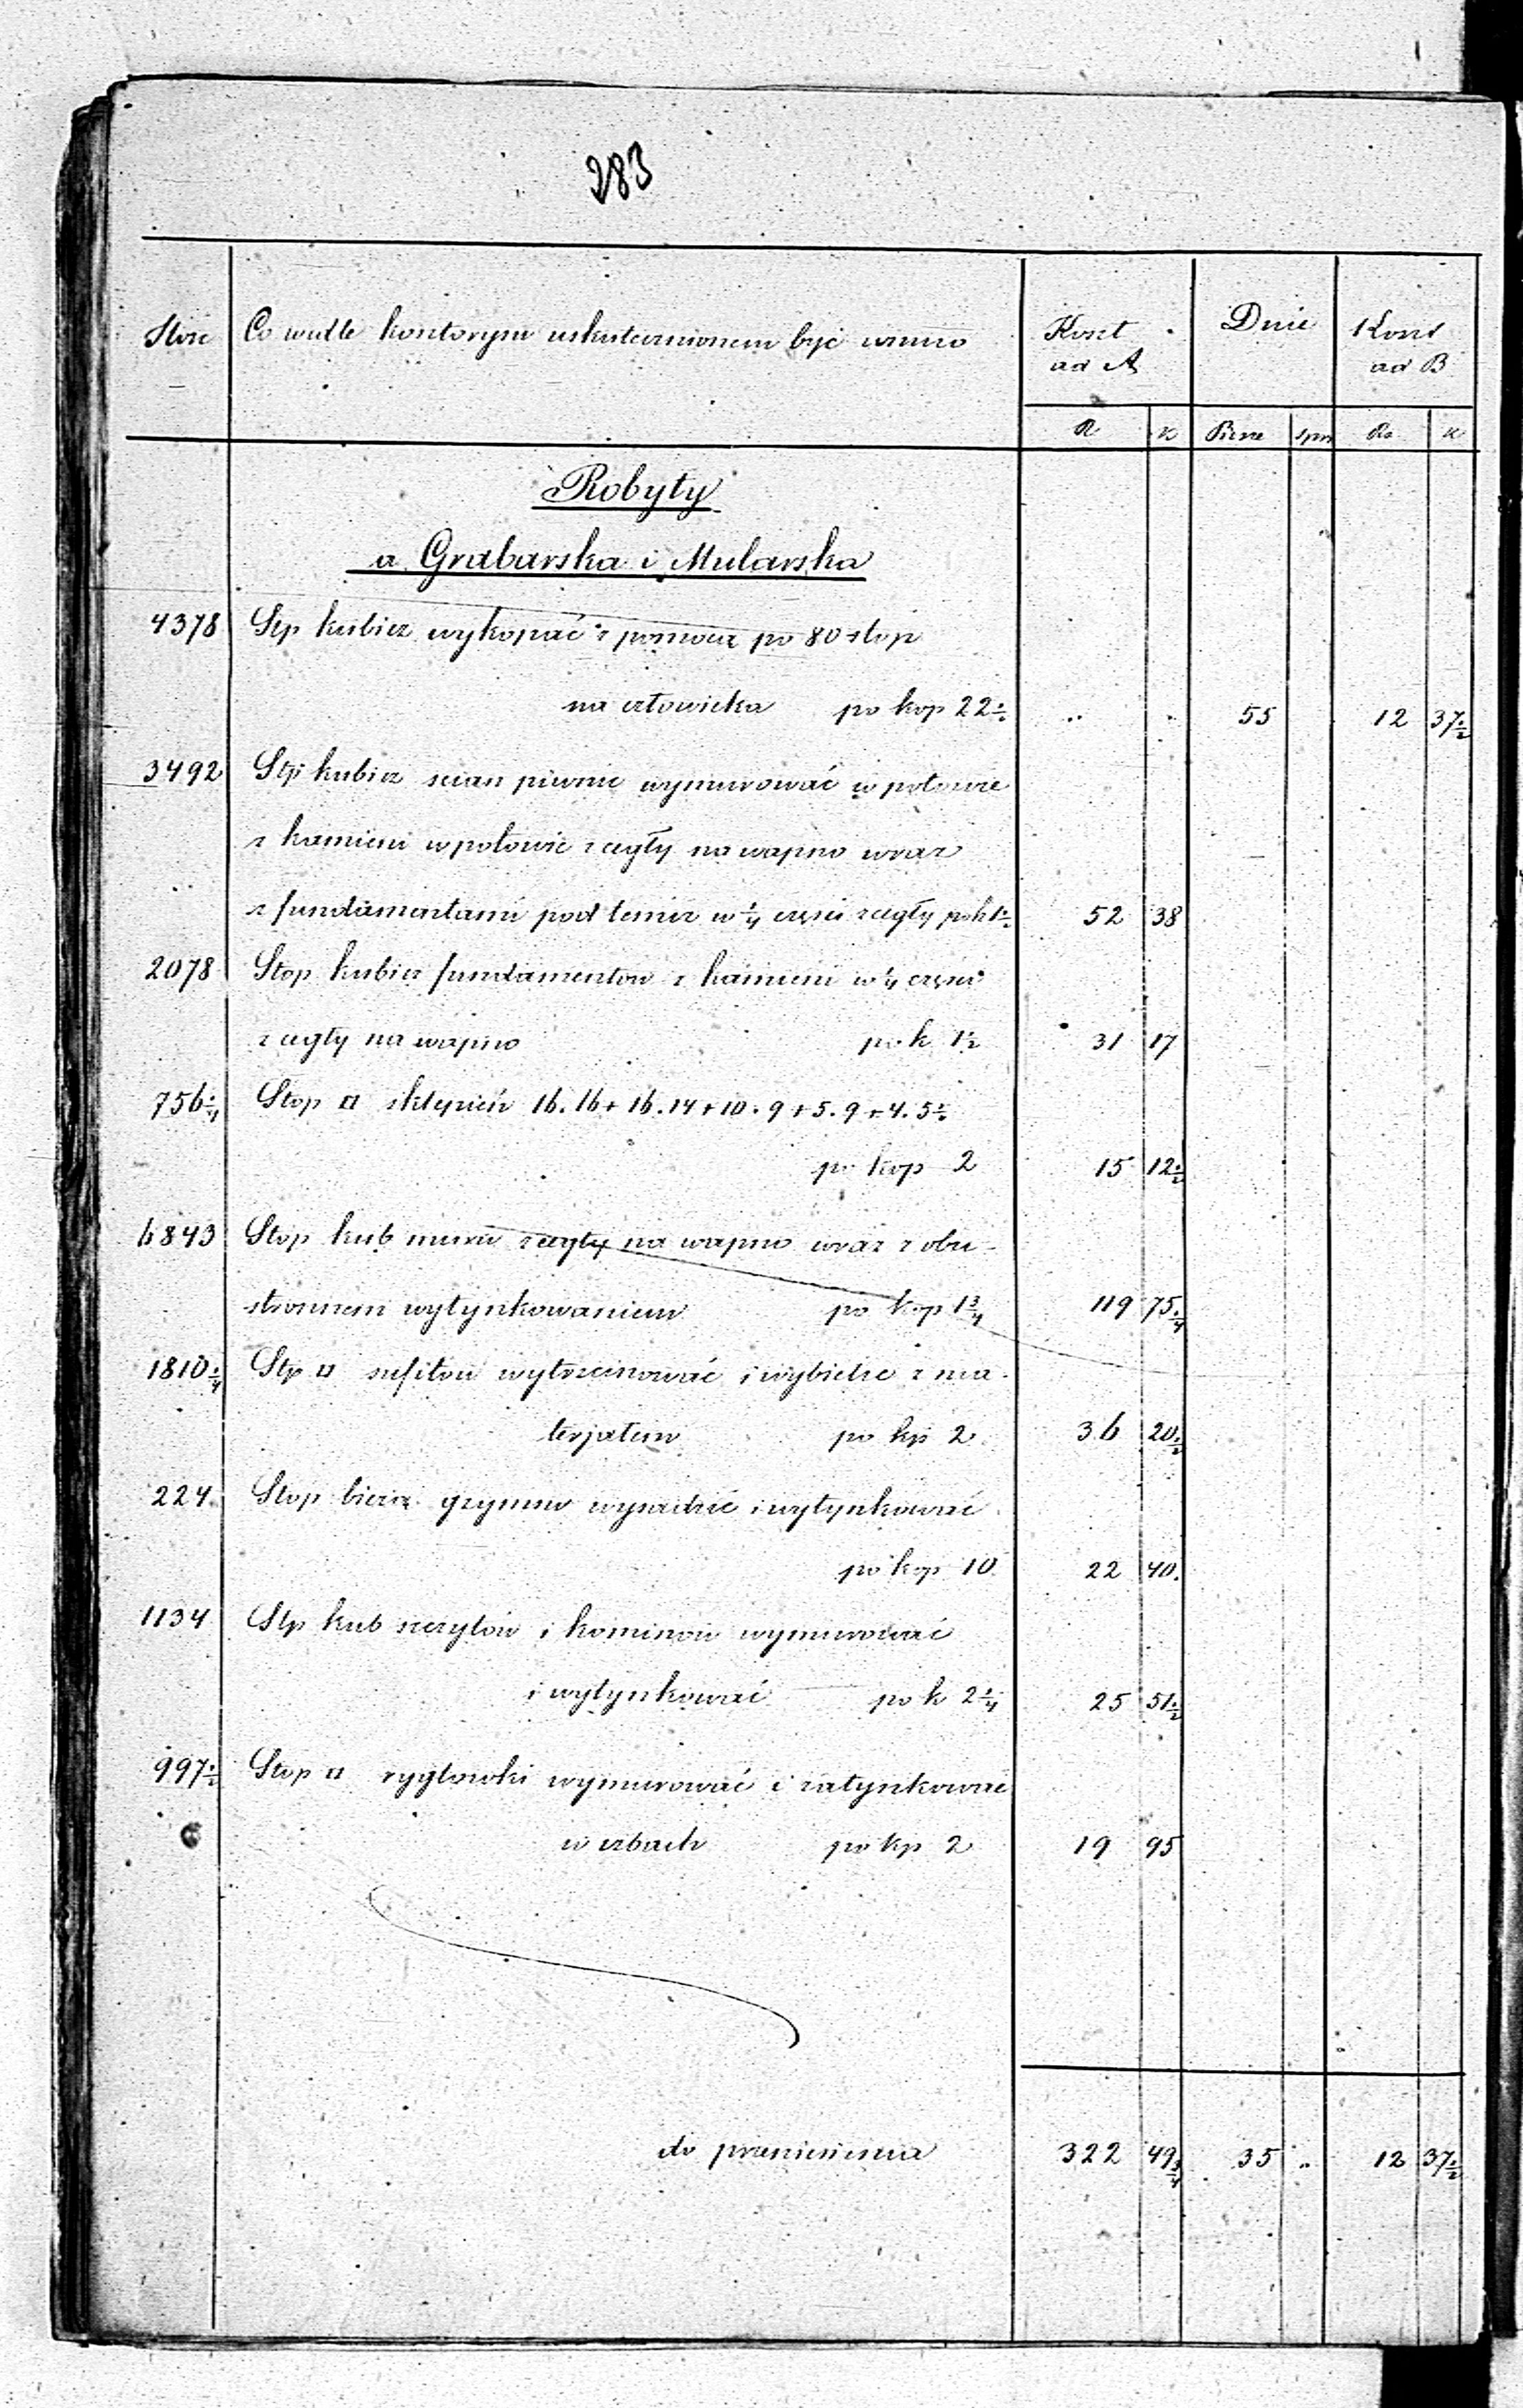 283
Ilosc Co wedle kosztorysu uskutecznionem być winno Koszt Dnie Koszt
ad A ad B
R k Piesze Rs k
Robyty
a Grabarska i Mularska
4378 Stp kubicz wykopać z pomocą po 80 stop
na człowieka po kop 22½ .. . 55 12 37½
3492 Stp kubicz scian piwnic wymurować w połowie
z kamieni w połowie z cegły na wapno wraz
z fundamentami pod temiz w ¼ części z cegły po k 1½ 52 38
2078 Stop kubicz fundamentow z kamieni w ¼ części
z cegły na wapno po k 1½ 31 17
756¼ Stop □ sklepień 16.16+16.14+10.9+5.9+4.5½
po kop 2 15 12½
6843 Stop kub muru z cegły na wapno wraz z obu-
stronnem wytynkowaniem po kop 1¾ 119 75¼
1810¼ Stp □ sufitow wytrzcinować i wybielic z ma-
terjałem po kp 2 36 20½
224 Stop bieżą. gzymsu wysadzić i wytynkować
po kop 10 22 40.
1134 Stp kub szczytów i kominow wymurować
i wytynkować po k 2¼ 25 51½
997½ Stop □ ryglowki wymurować i zatynkować
w izbach po kp 2 19 95
do przeniesienia 322 49¾ 35 .. 12 37½